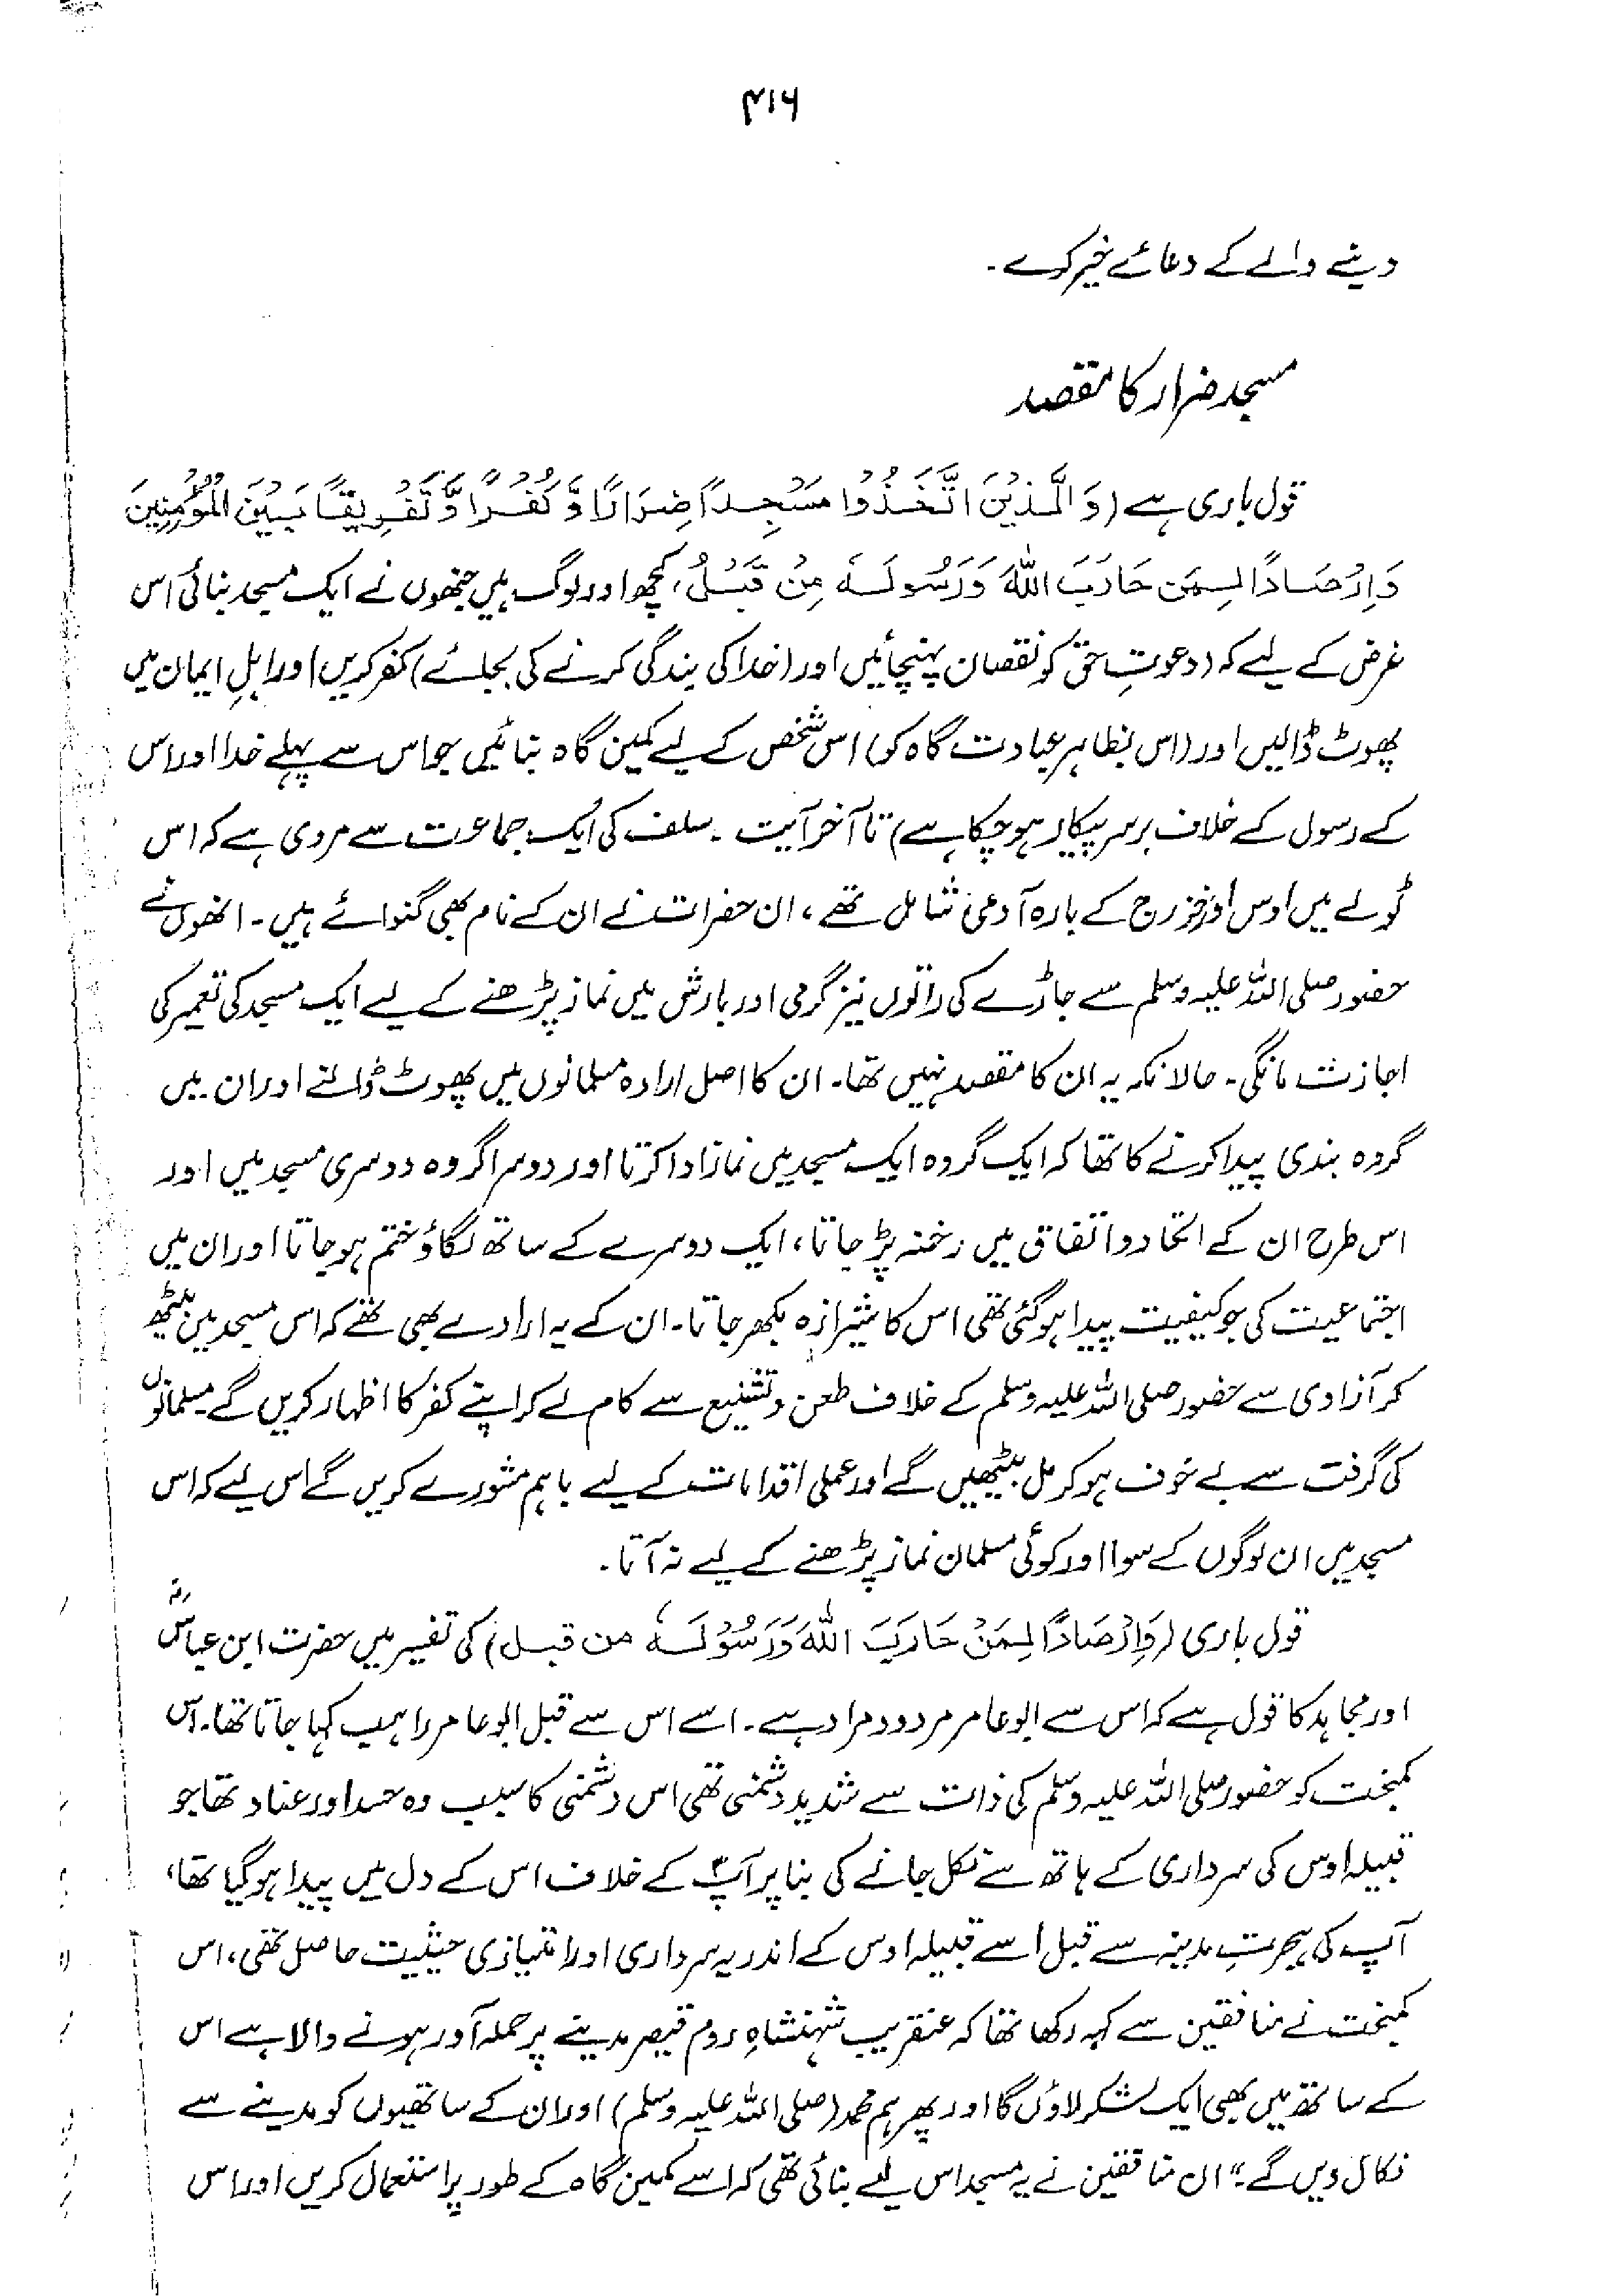 ۴۱۶
دینے والے کے دعائے خیر کرے۔
مسجد ضرار کا مقصد
قول باری ہے (وَالَّذِيْنَ اتَّخَذُوْا مَسْجِدًا ضِرَارًا وَّكُفْرًا وَّتَفْرِيقًا بَيْنَ الْمُؤْمِنِينَ
وَاِرْصَادًا لِمَن حَارَبَ اللهَ وَرَسُولَهٗ مِنْ قَبْلُ، کچھ اور لوگ ہیں جنھوں نے ایک مسجد بنائی اس
غرض کے لیے کہ (دعوتِ حق کو نقصان پہنچائیں اور (خدا کی بندگی کرنے کی بجائے) کفر کریں اور اہلِ ایمان میں
پھوٹ ڈالیں اور (اس بظاہر عبادت گاہ کو) اس شخص کے لیے کمین گاہ بنائیں جو اس سے پہلے خدا اور اس
کے رسول کے خلاف برسرپیکار ہو چکا ہے) تا آخر آیت۔ سلف کی ایک جماعت سے مروی ہے کہ اس
ٹولے میں اوس اور خزرج کے بارہ آدمی شامل تھے، ان حضرات نے ان کے نام بھی گنوائے ہیں۔ انھوں نے
حضور صلی اللہ علیہ وسلم سے جاڑے کی راتوں نیز گرمی اور بارش میں نماز پڑھنے کے لیے ایک مسجد کی تعمیر کی
اجازت مانگی۔ حالانکہ یہ ان کا مقصد نہیں تھا۔ ان کا اصل ارادہ مسلمانوں میں پھوٹ ڈالنے اور ان میں
گروہ بندی پیدا کرنے کا تھا کہ ایک گروہ ایک مسجد میں نماز ادا کرتا اور دوسرا گروہ دوسری مسجد میں اور
اس طرح ان کے اتحاد و اتفاق میں رخنہ پڑ جاتا، ایک دوسرے کے ساتھ لگاؤ ختم ہو جاتا اور ان میں
اجتماعیت کی جو کیفیت پیدا ہو گئی تھی اس کا شیرازہ بکھر جاتا۔ ان کے یہ ارادے بھی تھے کہ اس مسجد میں بیٹھ
کر آزادی سے حضور صلی اللہ علیہ وسلم کے خلاف طعن و تشنیع سے کام لے کر اپنے کفر کا اظہار کریں گے مسلمانوں
کی گرفت سے بے خوف ہو کر مل بیٹھیں گے اور عملی اقدامات کے لیے باہم مشورے کریں گے اس لیے کہ اس
مسجد میں ان لوگوں کے سوا اور کوئی مسلمان نماز پڑھنے کے لیے نہ آتا۔
قول باری (وَاِرْصَادًا لِمَنْ حَارَبَ اللهَ وَرَسُوْلَهٗ من قبل) کی تفسیر میں حضرت ابن عباسؓ
اور مجاہد کا قول ہے کہ اس سے ابو عامر مردود مراد ہے۔ اسے اس سے قبل ابو عامر راہب کہا جاتا تھا۔ اس
کمبخت کو حضور صلی اللہ علیہ وسلم کی ذات سے شدید دشمنی تھی اس دشمنی کا سبب وہ حسد اور عناد تھا جو
قبیلہ اوس کی سرداری کے ہاتھ سے نکل جانے کی بنا پر آپؐ کے خلاف اس کے دل میں پیدا ہو گیا تھا،
آپ کی ہجرتِ مدینہ سے قبل اسے قبیلہ اوس کے اندر یہ سرداری اور امتیازی حیثیت حاصل تھی، اس
کمبخت نے منافقین سے کہہ رکھا تھا کہ عنقریب شہنشاہِ روم قیصر مدینے پر حملہ آور ہونے والا ہے اس
کے ساتھ میں بھی ایک لشکر لاؤں گا اور پھر ہم محمد (صلی اللہ علیہ وسلم) اور ان کے ساتھیوں کو مدینے سے
نکال دیں گے۔" ان منافقین نے یہ مسجد اس لیے بنائی تھی کہ اسے کمین گاہ کے طور پر استعمال کریں اور اس